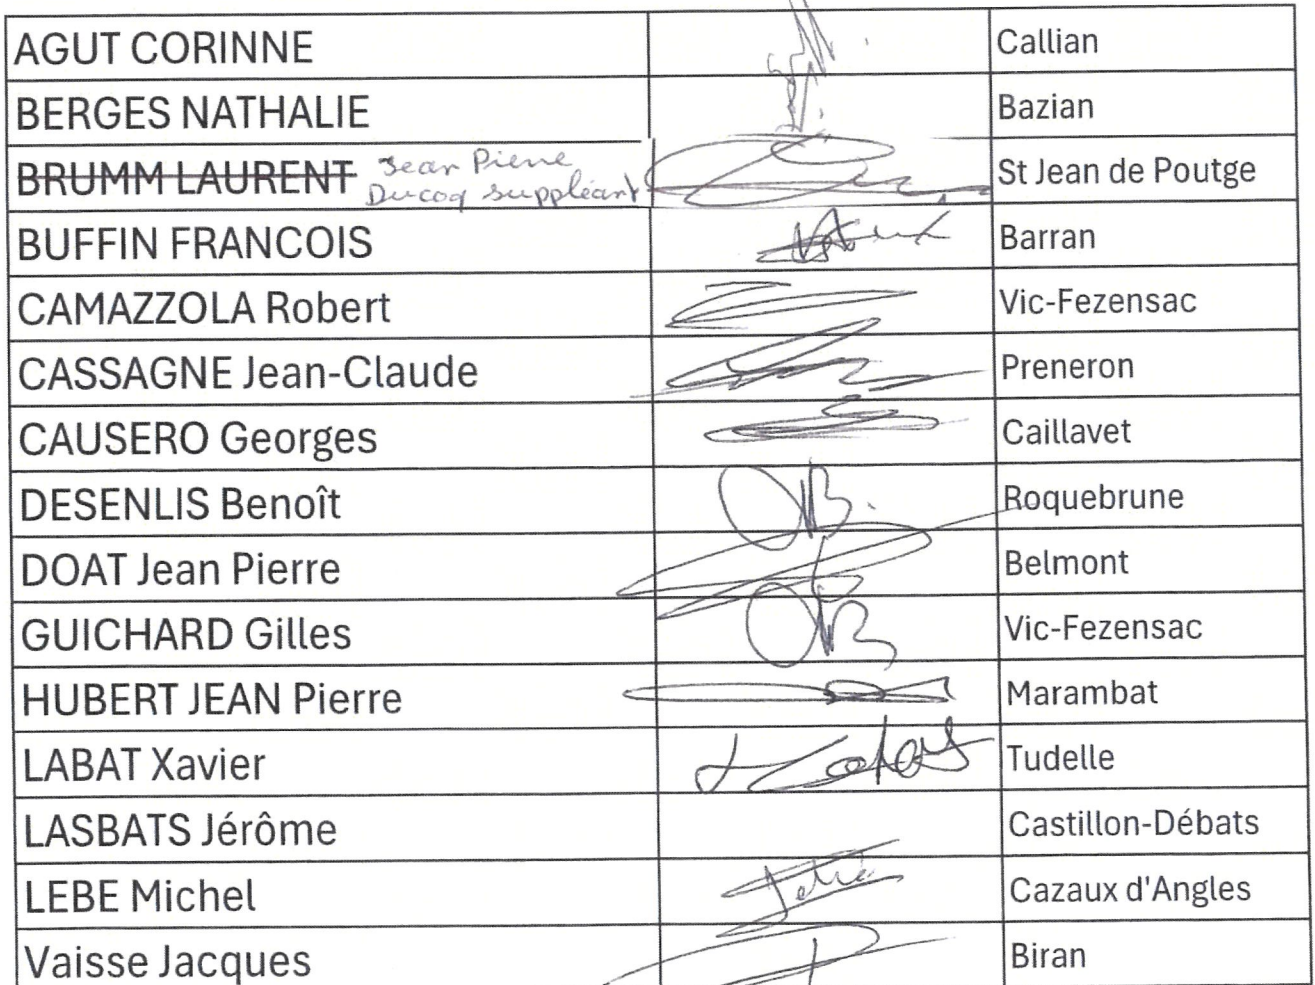 AGUT CORINNE Callian
BERGES NATHALIE Bazian
BRUMM LAURENT Jean Pierre St Jean de Poutge
Ducoq suppléant
BUFFIN FRANCOIS Barran
CAMAZZOLA Robert Vic-Fezensac
CASSAGNE Jean-Claude Preneron
CAUSERO Georges Caillavet
DESENLIS Benoît Roquebrune
DOAT Jean Pierre Belmont
GUICHARD Gilles Vic-Fezensac
HUBERT JEAN Pierre Marambat
LABAT Xavier Tudelle
LASBATS Jérôme Castillon-Débats
LEBE Michel Cazaux d'Angles
Vaisse Jacques Biran